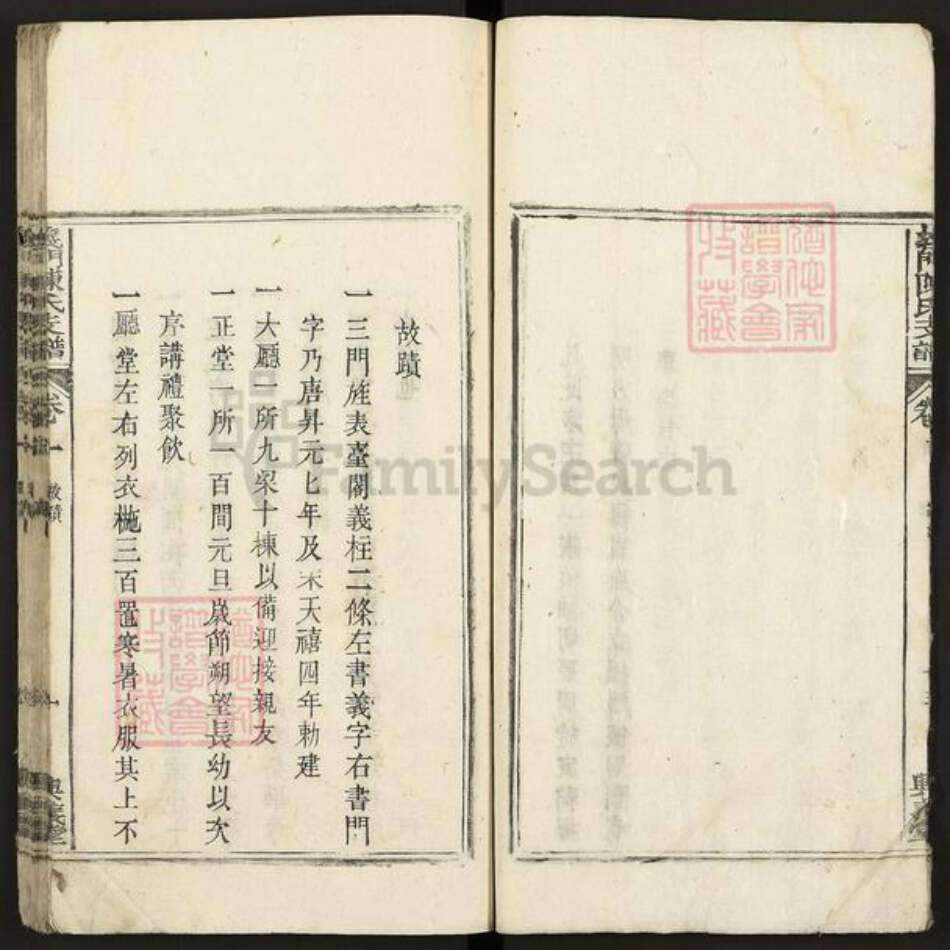 義門陳氏支譜
故蹟
一三門旌表臺閣義柱二條左書義字右書門
字乃唐昇元七年及宋天禧四年勅建
一大廳一所九梁十棟以備迎接親友
一正堂一所一百間元旦歲節朔望長幼以次
序講禮聚飲
一廳堂左右列衣椸三百置寒暑衣服其上不
義門陳氏支譜
卷一
故蹟
一
FamilySearch
譜學會
收藏
譜學會
收藏